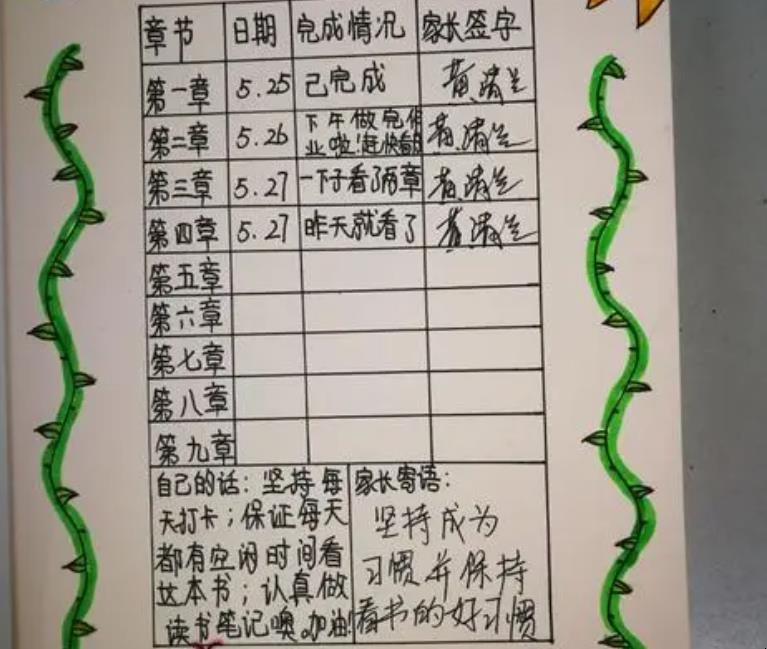 章节 日期 完成情况 家长签字
第一章 5.25 己完成 黄清兰
第二章 5.26 下午做完作
业啦!赶快看
第三章 5.27 一下子看了两章
第四章 5.27 昨天就看了
第五章
第六章
第七章
第八章
第九章
自己的话：坚持每
天打卡；保证每天
都有空闲时间看
这本书；认真做
读书笔记噢。加油!
家长寄语：
坚持成为
习惯并保持
看书的好习惯